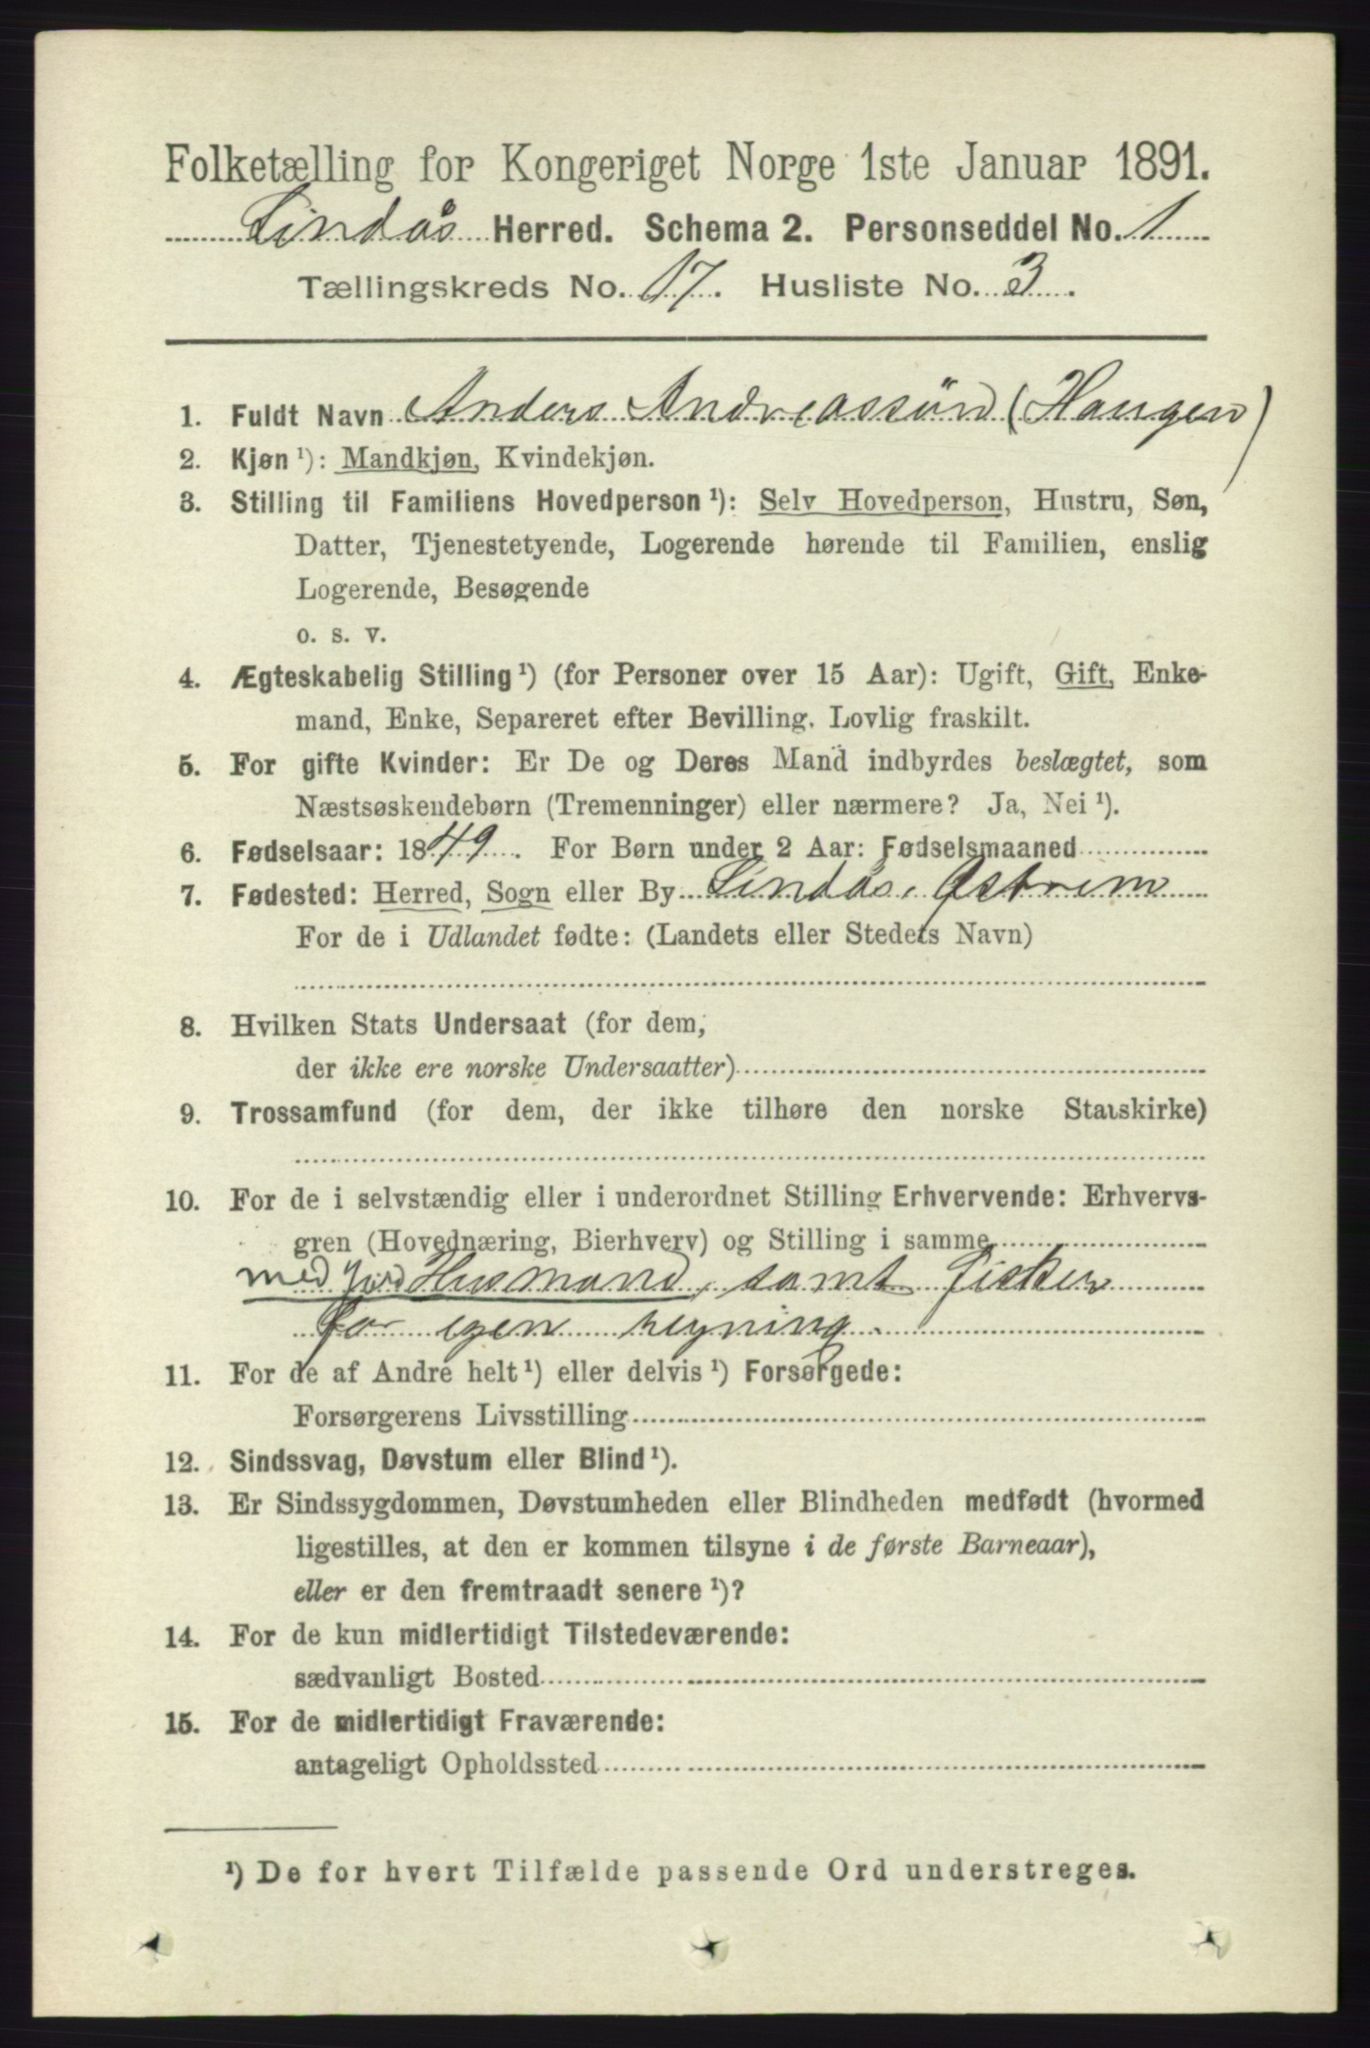 Folketælling for Kongeriget Norge 1ste Januar 1891.
Lindås Herred. Schema 2. Personseddel No. 1
Tællingskreds No. 17. Husliste No. 3.
1. Fuldt Navn Anders Andreassön (Haugen)
2. Kjøn ¹): Mandkjøn, Kvindekjøn.
3. Stilling til Familiens Hovedperson ¹): Selv Hovedperson, Hustru, Søn,
Datter, Tjenestetyende, Logerende hørende til Familien, enslig
Logerende, Besøgende
o. s. v.
4. Ægteskabelig Stilling ¹) (for Personer over 15 Aar): Ugift, Gift, Enke-
mand, Enke, Separeret efter Bevilling. Lovlig fraskilt.
5. For gifte Kvinder: Er De og Deres Mand indbyrdes beslægtet, som
Næstsøskendebørn (Tremenninger) eller nærmere? Ja, Nei ¹).
6. Fødselsaar: 1849. For Børn under 2 Aar: Fødselsmaaned
7. Fødested: Herred, Sogn eller By Lindås, Østrem
For de i Udlandet fødte: (Landets eller Stedets Navn)
8. Hvilken Stats Undersaat (for dem,
der ikke ere norske Undersaatter)
9. Trossamfund (for dem, der ikke tilhøre den norske Statskirke)
10. For de i selvstændig eller i underordnet Stilling Erhvervende: Erhvervs-
gren (Hovednæring, Bierhverv) og Stilling i samme
med jord Husmand, samt fisker
for egen regning.
11. For de af Andre helt ¹) eller delvis ¹) Forsørgede:
Forsørgerens Livsstilling
12. Sindssvag, Døvstum eller Blind ¹).
13. Er Sindssygdommen, Døvstumheden eller Blindheden medfødt (hvormed
ligestilles, at den er kommen tilsyne i de første Barneaar),
eller er den fremtraadt senere ¹)?
14. For de kun midlertidigt Tilstedeværende:
sædvanligt Bosted
15. For de midlertidigt Fraværende:
antageligt Opholdssted
¹) De for hvert Tilfælde passende Ord understreges.